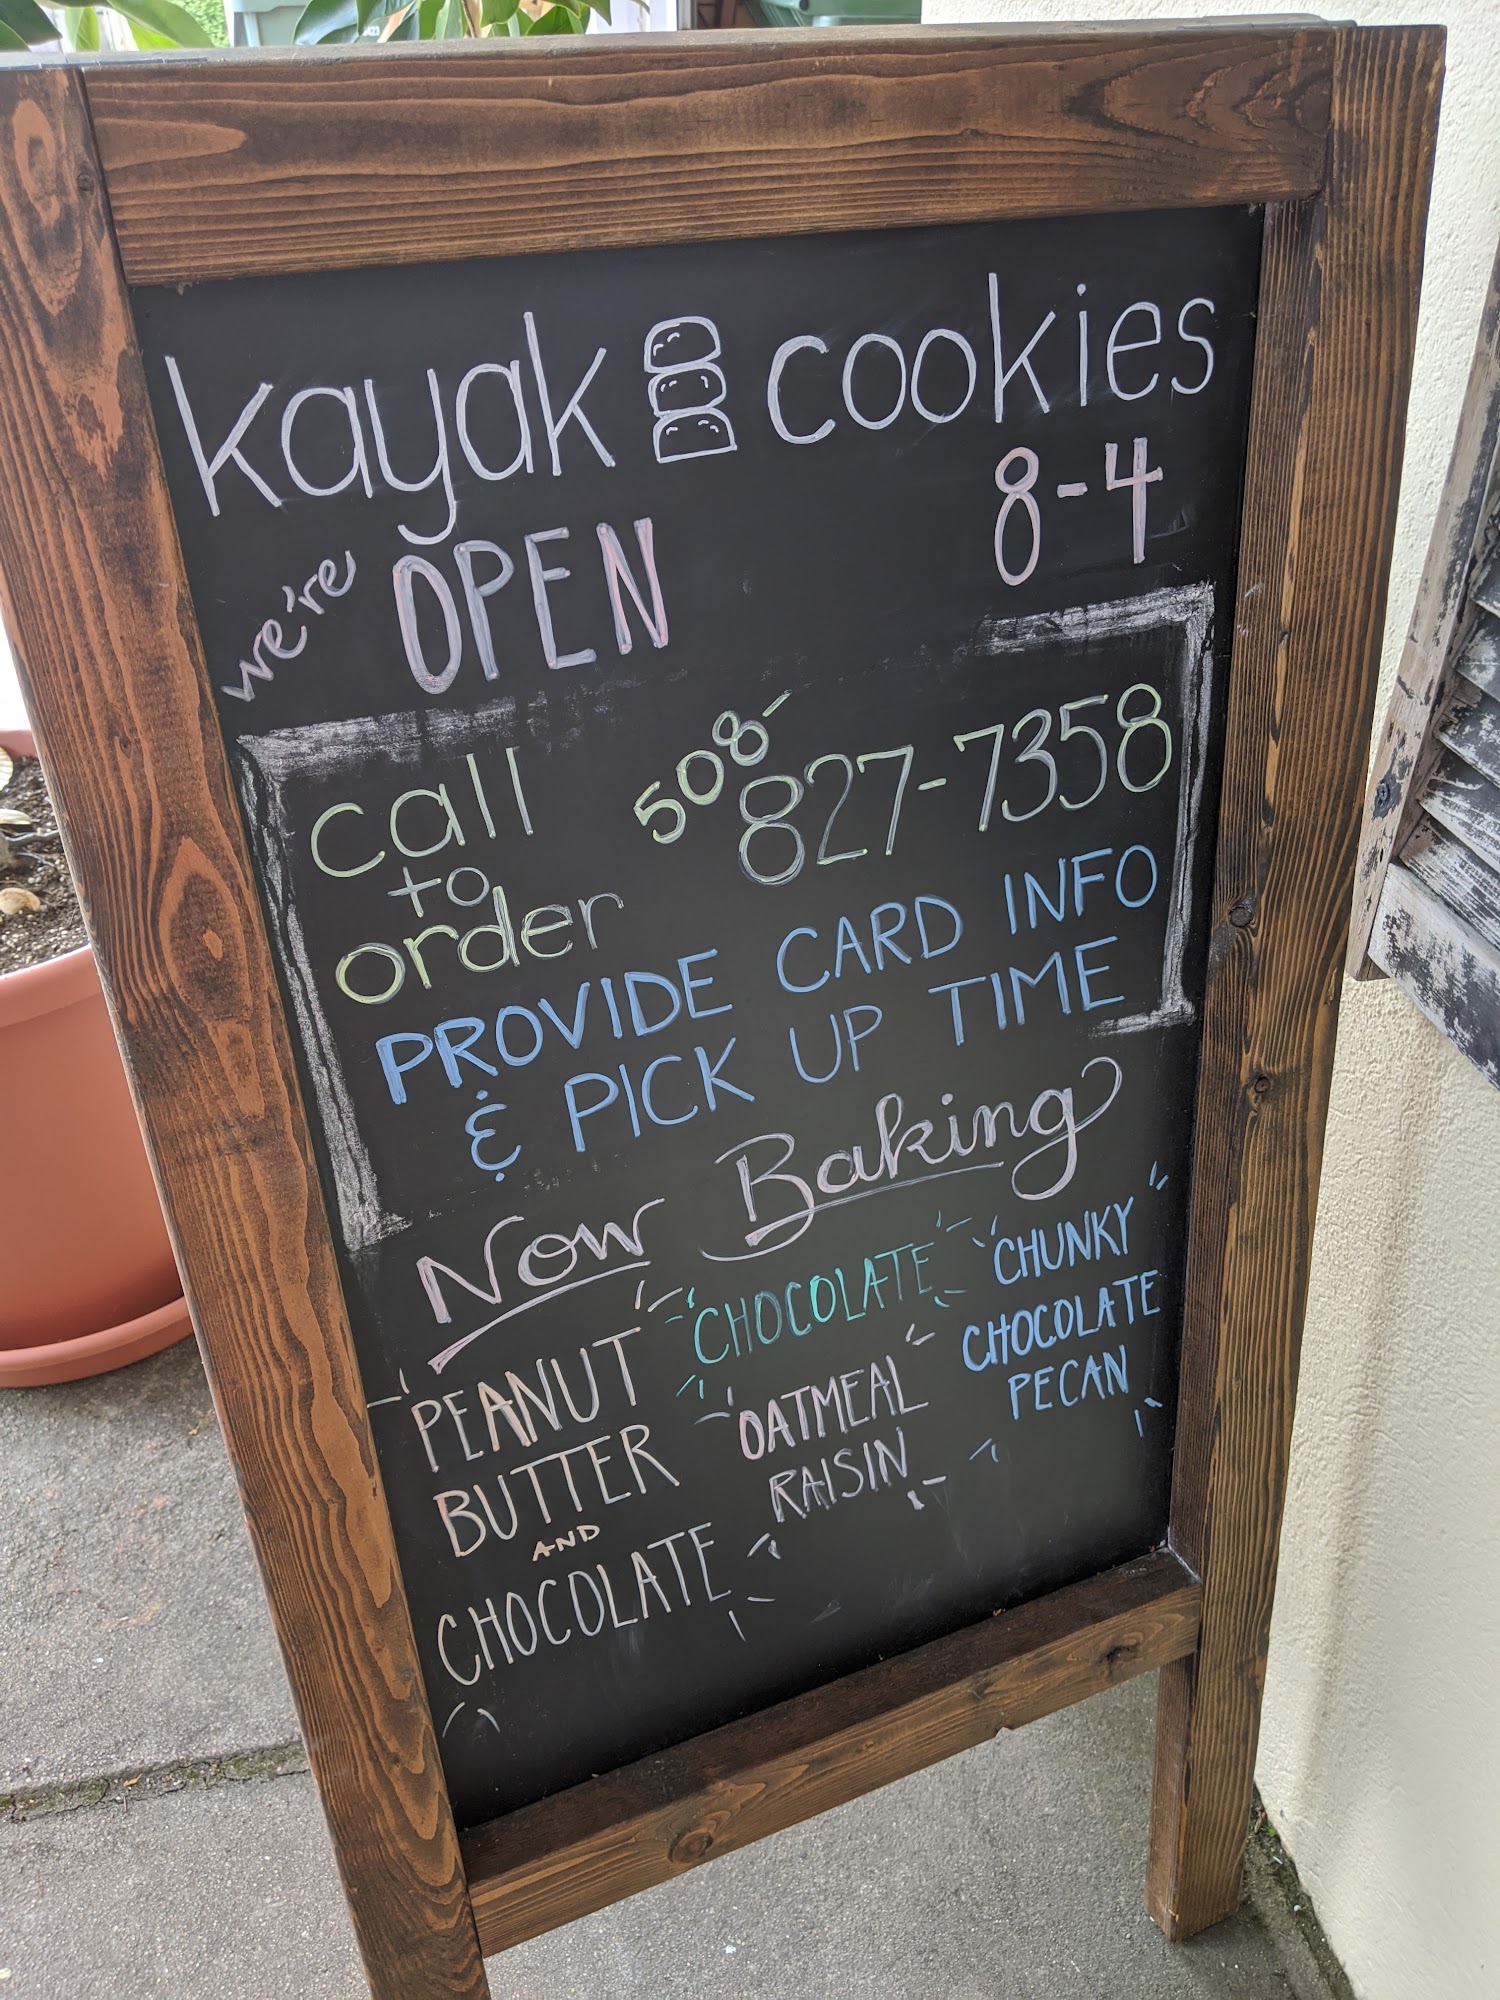 kayak cookies
we're OPEN 8-4
call to order 508-827-7358
PROVIDE CARD INFO
& PICK UP TIME
Now Baking
PEANUT
BUTTER
AND
CHOCOLATE
CHOCOLATE
OATMEAL
RAISIN
CHUNKY
CHOCOLATE
PECAN